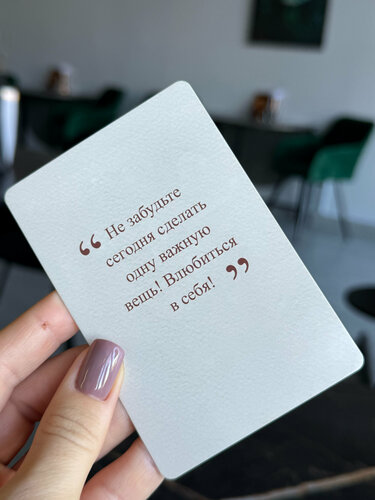 “ Не забудьте
сегодня сделать
одну важную
вешь! Влюбиться
в себя! ”